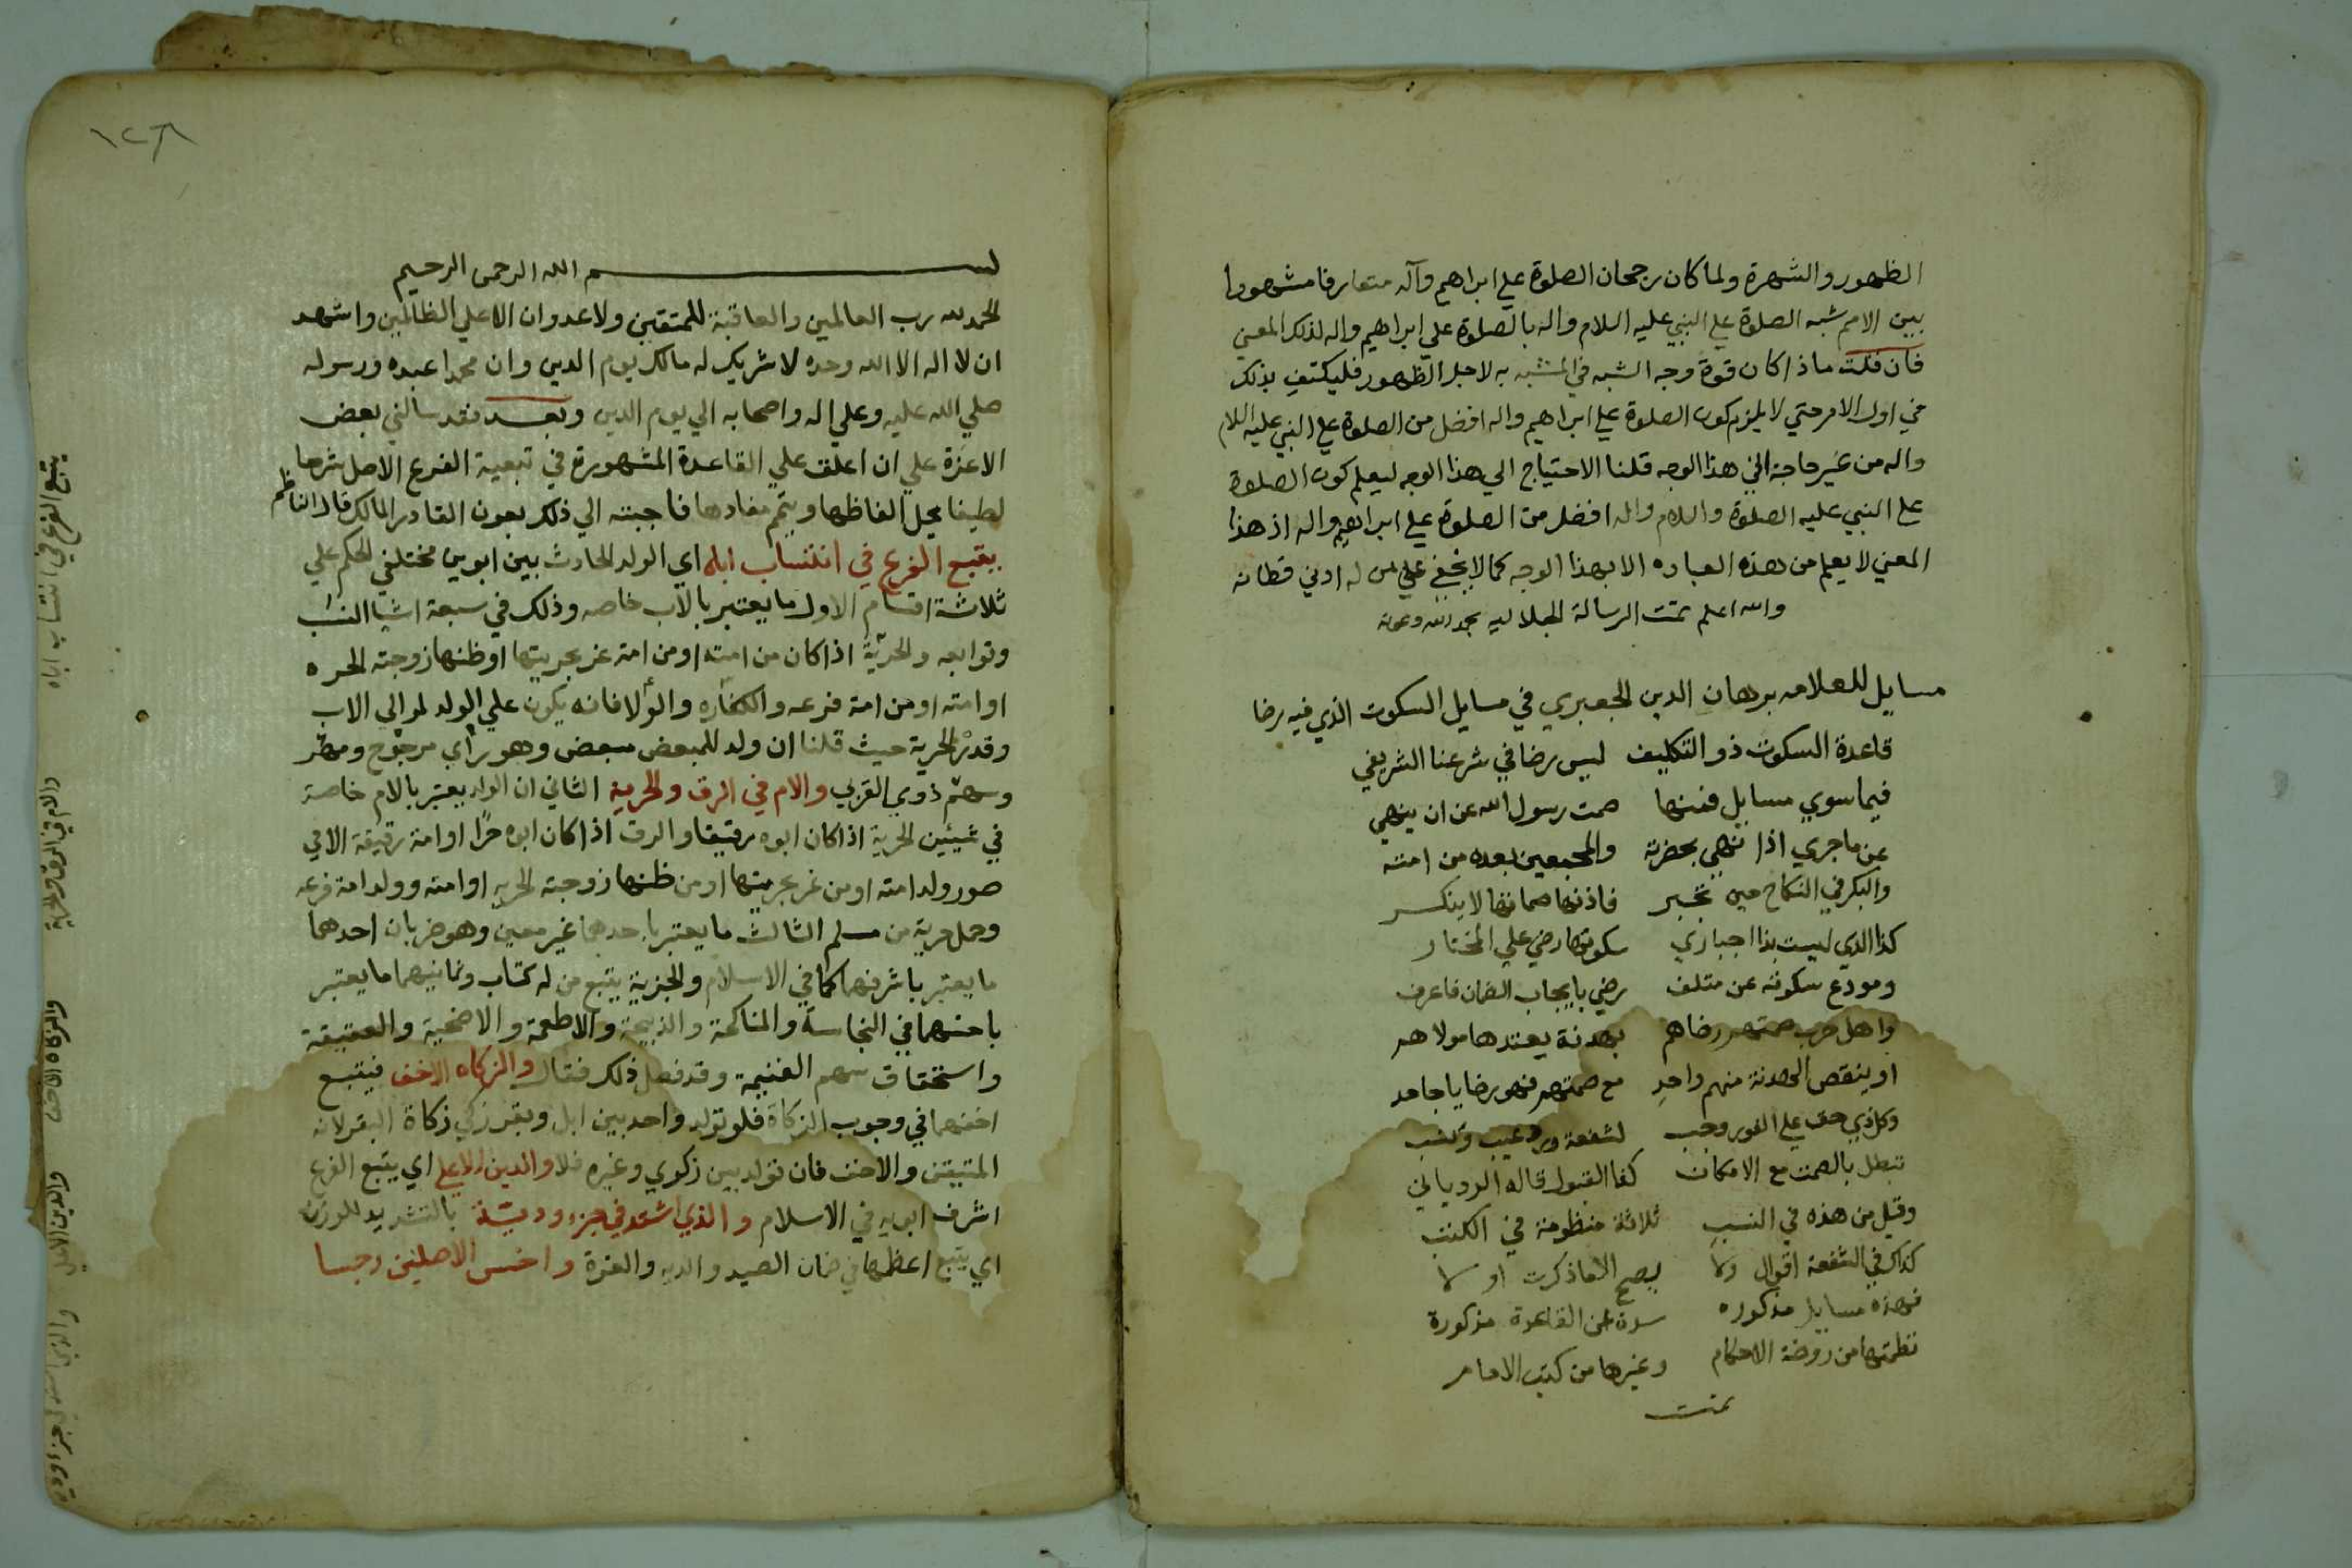 الظهور والشهرة ولما كان رجحان الصلوة علي ابراهيم وآله متعارفا مشهورا
بين الامم شبه الصلوة علي النبي عليه السلام واله بالصلوة علي ابراهيم واله لذلك المعني
فان قلت ماذا كان قوة وجه الشبه في المشبه به لاجل الظهور فليكتف بذلك
في اول الامر حتي لا يلزم كون الصلوة علي ابراهيم واله افضل من الصلوة علي النبي عليه السلام
واله من غير حاجة الي هذا الوجه قلنا الاحتياج الي هذا الوجه ليعلم كون الصلوة
علي النبي عليه الصلوة والسلام واله افضل من الصلوة علي ابراهيم واله اذ هذا
المعني لا يعلم من هذه العباره الا بهذا الوجه كما لا يخفي علي من له ادني فطانه
والله اعلم تمت الرسالة الجلاليه بحمد الله وعونه
مسايل للعلامه برهان الدين الجعبري في مسايل السكوت الذي فيه رضا
قاعدة السكوت ذو التكليف ليس رضا في شرعنا الشريفي
فيما سوي مسايل فمنها صمت رسول الله عن ان ينهي
عن ماجري اذا نهي بحضرته والمجمعين بعده من امته
والبكر في النكاح حين تخبر فاذنها صماتها لا ينكر
كذا الذي ليست بذا اجباري سكوتها رضي علي المختار
ومودع سكوته عن متلف رضي بايجاب الضمان فاعرف
واهل حرب صمتهم رضاهم بهدنة يعقدها مولاهم
او ينقص الهدنة منهم واحد مع صمتهم فهو رضا يا جاحد
وكل ذي حق علي الفور وجب لشفعة ورد عيب ونسب
تبطل بالصمت مع الامكان كفا القبول قاله الروياني
وقيل من هذه في النسب ثلاثة منظومة في الكتب
كذاك في الشفعة اقوال ولا يصح الا ما ذكرت اولا
فهذه مسايل مذكوره سدة عن القاعدة مذكورة
نظمتها من روضة الاحكام وغيرها من كتب الامام
تمت
١٢٨
بسم الله الرحمن الرحيم
الحمد لله رب العالمين والعاقبة للمتقين ولا عدوان الا علي الظالمين واشهد
ان لا اله الا الله وحده لا شريك له مالك يوم الدين وان محمدا عبده ورسوله
صلي الله عليه وعلي اله واصحابه الي يوم الدين وبعد فقد سألني بعض
الاعزة علي ان اعلق علي القاعدة المشهورة في تبعية الفرع الاصل شرحا
لطيفا يحل الفاظها ويتم مفادها فاجبته الي ذلك بعون القادر المالك قال الناظم
يتبع الفرع في انتساب اباه اي الولد الحادث بين ابوين مختلفي الحكم علي
ثلاثة اقسام الاول ما يعتبر بالاب خاصه وذلك في سبعة اشيا النسب
وتوابعه والحرية اذا كان من امته او من امة غر بحريتها او ظنها زوجته الحره
او امته او من امة فرعه والكفاره والولا فانه يكون علي الولد لموالي الاب
وقدر الحرية حيث قلنا ان ولد المبعض مبعض وهو رأي مرجوح ومهر
وسهم ذوي القربي والام في الرق والحرية الثاني ان الولد يعتبر بالام خاصة
في شيئين الحرية اذا كان ابوه رقيقا والرق اذا كان ابوه حرا وامة رقيقة الا في
صور ولد امته او من غر بحريتها او من ظنها زوجته الحريه او امته وولد امة فرعه
وحمل حربية من مسلم الثالث ما يعتبر باحدهما غير معين وهو ضربان احدهما
ما يعتبر باشرفهما كما في الاسلام والجزية يتبع من له كتاب وثانيهما ما يعتبر
باخسهما في النجاسة والمناكحة والذبيحة والاطعمة والاضحية والعقيقة
واستحقاق سهم الغنيمة وقد فصل ذلك فقال والزكاه الاخف فيتبع
اخفهما في وجوب الزكاة فلو تولد واحد بين ابل وبقر زكي زكاة البقر لانه
المتيقن والاخف فان تولد بين زكوي وغيره فلا والدين الاعلي اي يتبع الفرع
اشرف ابويه في الاسلام والذي اشتد في جزء ودية بالتشديد للوزن
اي يتبع اعظمها في ضمان الصيد والديه والغرة واخس الاصلين رجسا
يتبع الفرع في انتساب اباه
والام في الرق والحرية
والزكاه الاخف
والدين الاعلي